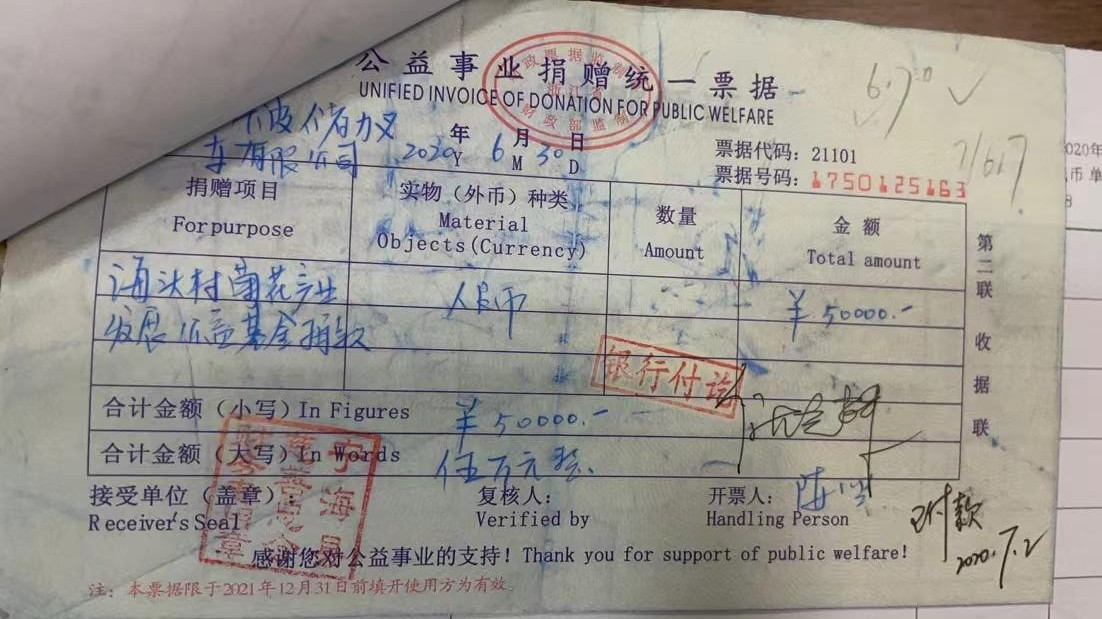 公益事业捐赠统一票据
UNIFIED INVOICE OF DONATION FOR PUBLIC WELFARE
6.70
波 力叉
车有限公司
2020年 6月 30日
Y M D
票据代码：21101
票据号码：1750125163
捐赠项目
For purpose
实物（外币）种类
Material
Objects(Currency)
数量
Amount
金额
Total amount
海头村菊花产业
发展公益基金捐款
人民币
￥50000.-
银行付讫
第二联 收据联
合计金额（小写）In Figures ￥50000.-
合计金额（大写）In Words 伍万元整
接受单位（盖章）：
Receiver's Seal
复核人：
Verified by
开票人：
Handling Person
已付款
2020.7.2
感谢您对公益事业的支持！Thank you for support of public welfare!
注：本票据限于2021年12月31日前填开使用方为有效。